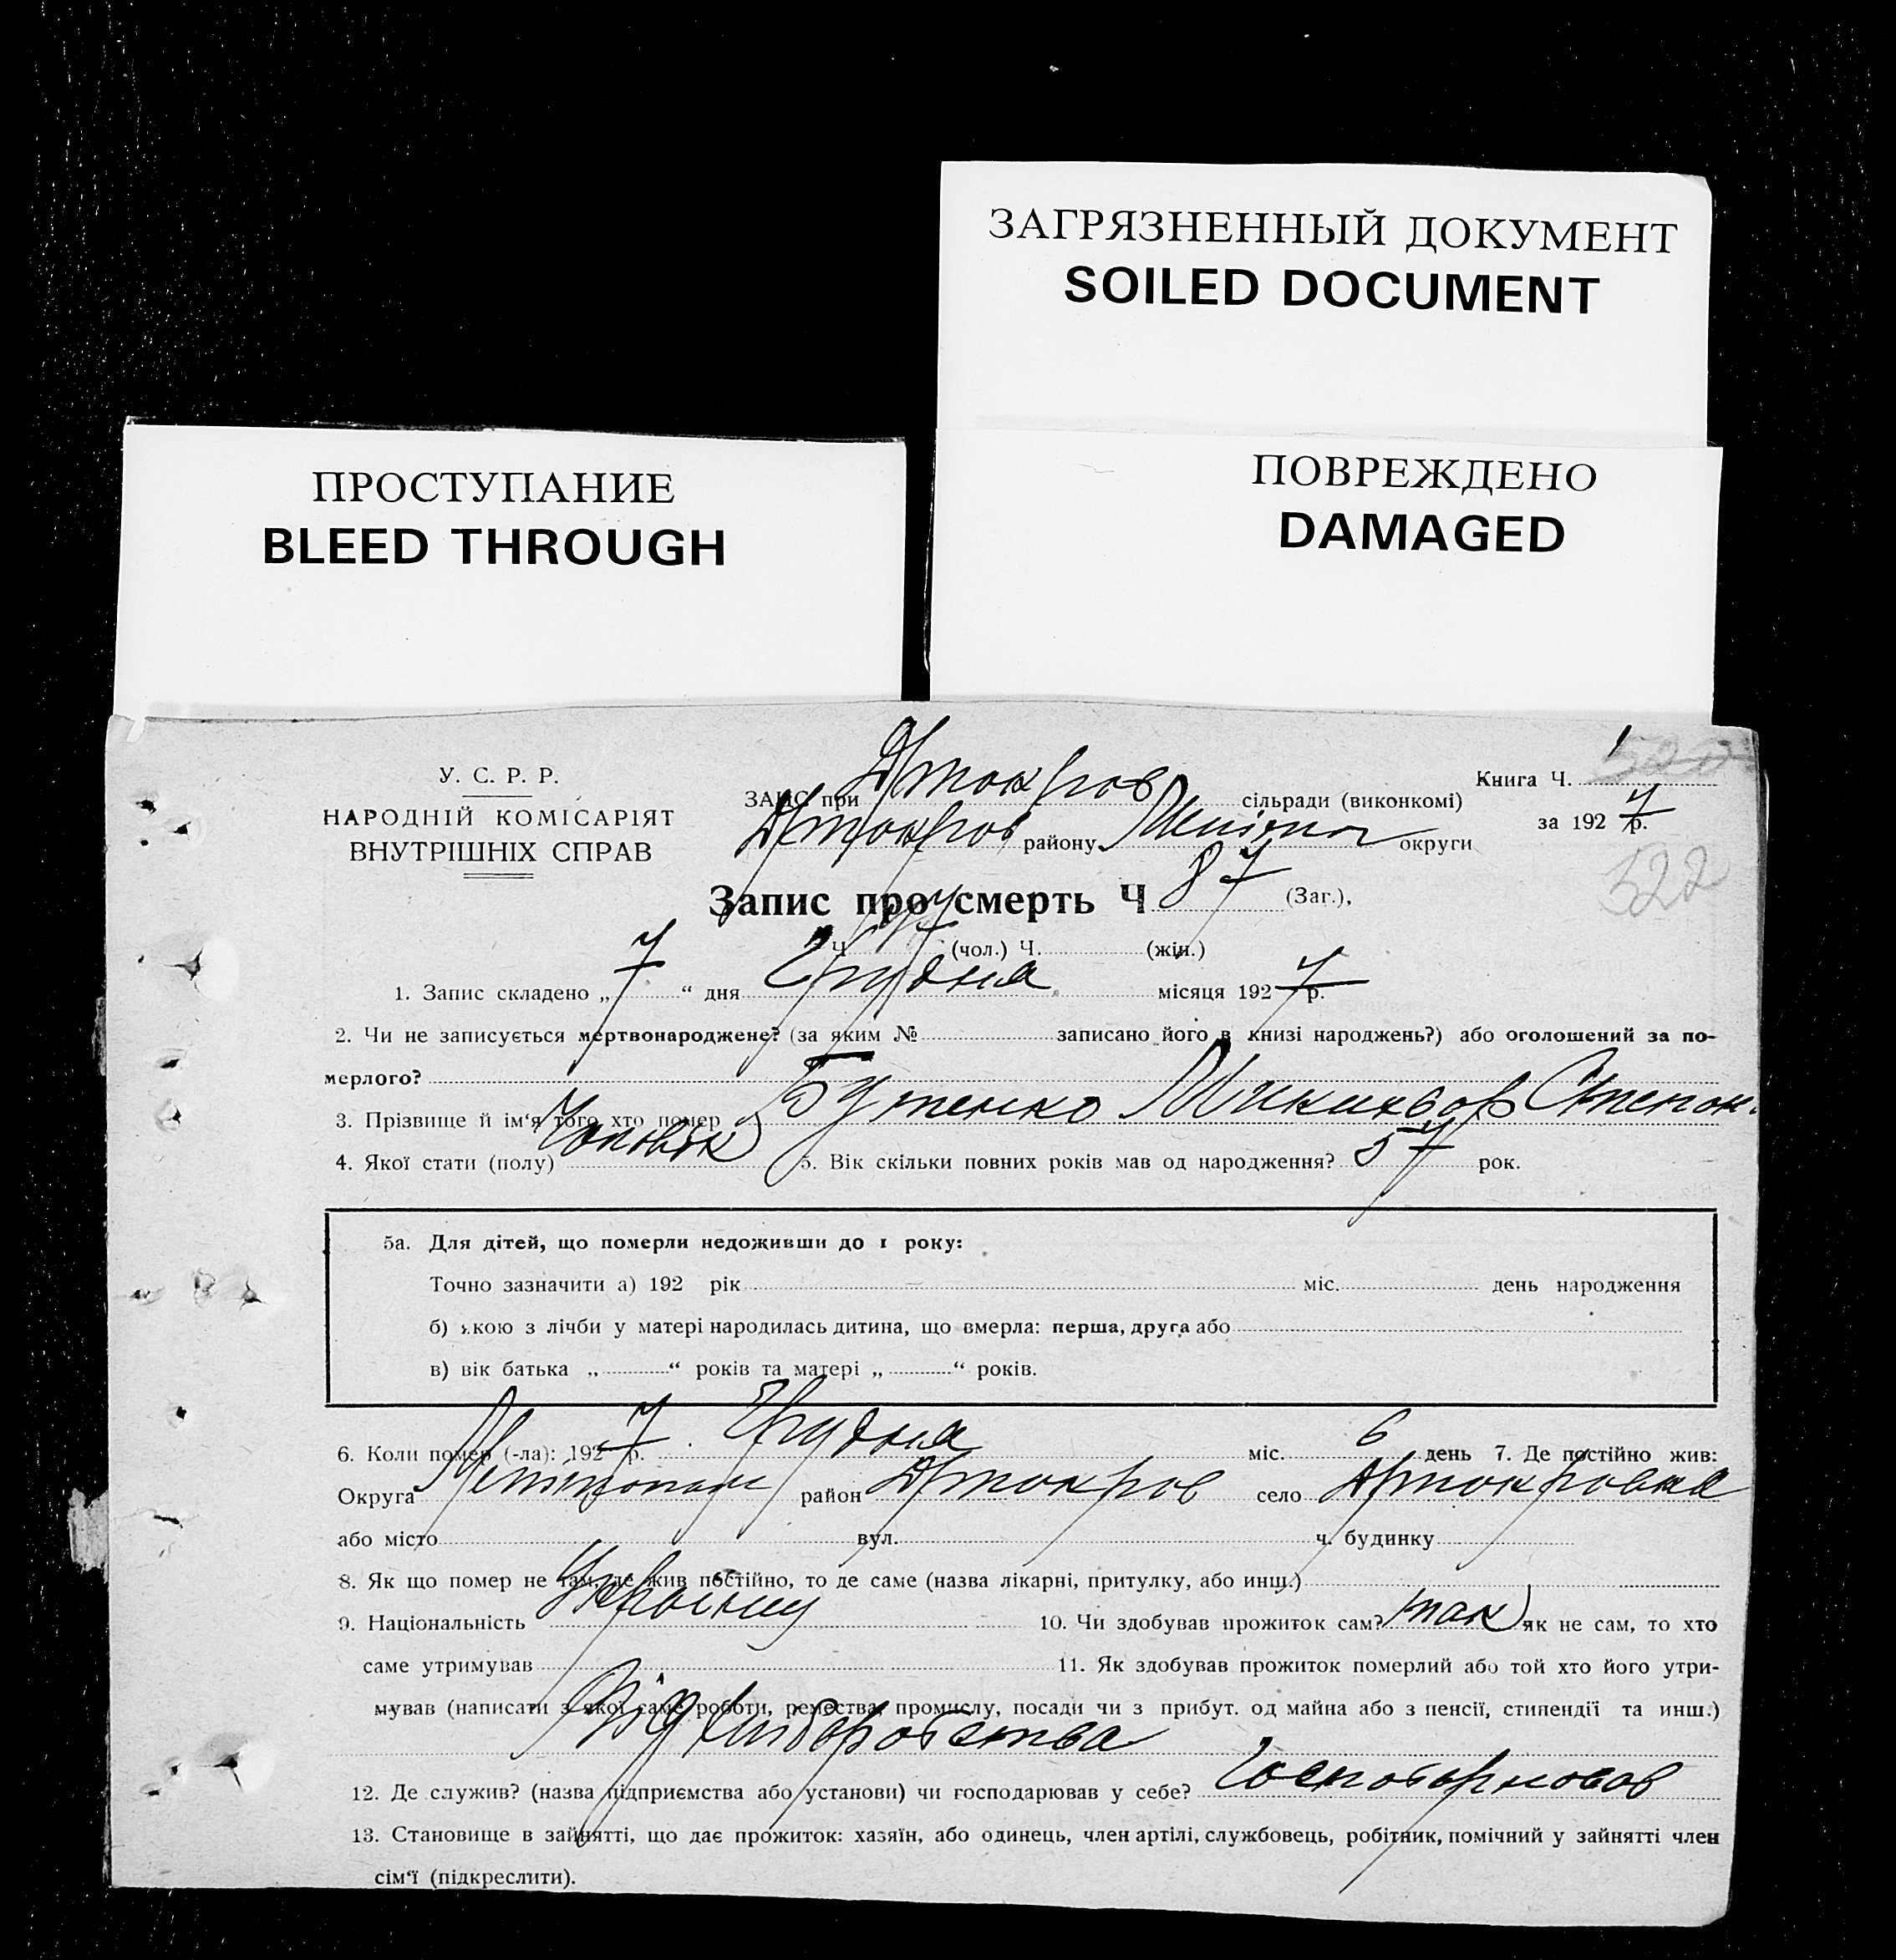 ЗАГРЯЗНЕННЫЙ ДОКУМЕНТ
SOILED DOCUMENT
ПРОСТУПАНИЕ
BLEED THROUGH
ПОВРЕЖДЕНО
DAMAGED
У. С. Р. Р.
НАРОДНІЙ КОМІСАРІЯТ
ВНУТРІШНІХ СПРАВ
ЗАГС при сільради (виконкомі)
району округи
Книга Ч. 1
за 1927 р.
522
Запис про смерть Ч 87 (Заг.),
Ч. 47 (чол.) Ч. (жін.)
1. Запис складено „7“ дня Грудня місяця 1927 р.
2. Чи не записується мертвонароджене? (за яким № записано його в книзі народжень?) або оголошений за по-
мерлого?
3. Прізвище й ім‘я того хто помер Бутенко Микихвор Степан.
4. Якої стати (полу) Чоловік 5. Вік скільки повних років мав од народження? 57 рок.
5а. Для дітей, що померли недоживши до 1 року:
Точно зазначити а) 192 рік міс. день народження
б) якою з лічби у матері народилась дитина, що вмерла: перша, друга або
в) вік батька „ “ років та матері „ “ років.
6. Коли помер (-ла): 1927 р. Грудня міс. 6 день 7. Де постійно жив:
Округа район село
або місто вул. ч. будинку
8. Як що помер не там, де жив постійно, то де саме (назва лікарні, притулку, або инш.)
9. Національність 10. Чи здобував прожиток сам? так як не сам, то хто
саме утримував 11. Як здобував прожиток померлий або той хто його утри-
мував (написати з якої саме роботи, ремества, промислу, посади чи з прибут. од майна або з пенсії, стипендії та инш.)
Від хліборобства
12. Де служив? (назва підприємства або установи) чи господарював у себе? Господарював
13. Становище в зайнятті, що дає прожиток: хазяїн, або одинець, член артілі, службовець, робітник, помічний у зайнятті член
сім‘ї (підкреслити).